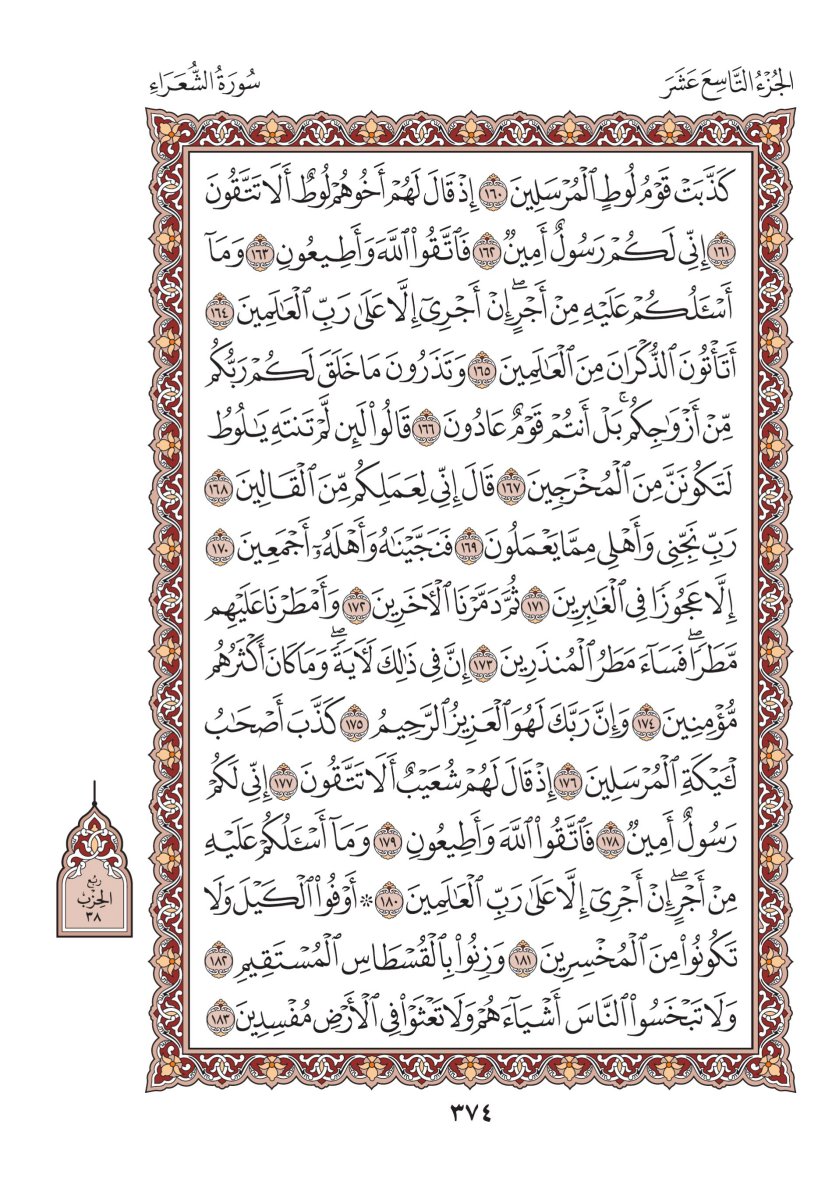 الجُزْءُ التَّاسِعَ عَشَرَ
سُورَةُ الشُّعَرَاءِ
كَذَّبَتۡ قَوۡمُ لُوطٍ ٱلۡمُرۡسَلِينَ ١٦٠ إِذۡ قَالَ لَهُمۡ أَخُوهُمۡ لُوطٌ أَلَا تَتَّقُونَ
١٦١ إِنِّي لَكُمۡ رَسُولٌ أَمِينٞ ١٦٢ فَٱتَّقُواْ ٱللَّهَ وَأَطِيعُونِ ١٦٣ وَمَآ
أَسۡـَٔلُكُمۡ عَلَيۡهِ مِنۡ أَجۡرٍۖ إِنۡ أَجۡرِيَ إِلَّا عَلَىٰ رَبِّ ٱلۡعَٰلَمِينَ ١٦٤
أَتَأۡتُونَ ٱلذُّكۡرَانَ مِنَ ٱلۡعَٰلَمِينَ ١٦٥ وَتَذَرُونَ مَا خَلَقَ لَكُمۡ رَبُّكُم
مِّنۡ أَزۡوَٰجِكُمۚ بَلۡ أَنتُمۡ قَوۡمٌ عَادُونَ ١٦٦ قَالُواْ لَئِن لَّمۡ تَنتَهِ يَٰلُوطُ
لَتَكُونَنَّ مِنَ ٱلۡمُخۡرَجِينَ ١٦٧ قَالَ إِنِّي لِعَمَلِكُم مِّنَ ٱلۡقَالِينَ ١٦٨
رَبِّ نَجِّنِي وَأَهۡلِي مِمَّا يَعۡمَلُونَ ١٦٩ فَنَجَّيۡنَٰهُ وَأَهۡلَهُۥٓ أَجۡمَعِينَ ١٧٠
إِلَّا عَجُوزٗا فِي ٱلۡغَٰبِرِينَ ١٧١ ثُمَّ دَمَّرۡنَا ٱلۡأٓخَرِينَ ١٧٢ وَأَمۡطَرۡنَا عَلَيۡهِم
مَّطَرٗاۖ فَسَآءَ مَطَرُ ٱلۡمُنذَرِينَ ١٧٣ إِنَّ فِي ذَٰلِكَ لَأٓيَةٗۖ وَمَا كَانَ أَكۡثَرُهُم
مُّؤۡمِنِينَ ١٧٤ وَإِنَّ رَبَّكَ لَهُوَ ٱلۡعَزِيزُ ٱلرَّحِيمُ ١٧٥ كَذَّبَ أَصۡحَٰبُ
لۡـَٔيۡكَةِ ٱلۡمُرۡسَلِينَ ١٧٦ إِذۡ قَالَ لَهُمۡ شُعَيۡبٌ أَلَا تَتَّقُونَ ١٧٧ إِنِّي لَكُمۡ
رَسُولٌ أَمِينٞ ١٧٨ فَٱتَّقُواْ ٱللَّهَ وَأَطِيعُونِ ١٧٩ وَمَآ أَسۡـَٔلُكُمۡ عَلَيۡهِ
مِنۡ أَجۡرٍۖ إِنۡ أَجۡرِيَ إِلَّا عَلَىٰ رَبِّ ٱلۡعَٰلَمِينَ ١٨٠ ۞ أَوۡفُواْ ٱلۡكَيۡلَ وَلَا
تَكُونُواْ مِنَ ٱلۡمُخۡسِرِينَ ١٨١ وَزِنُواْ بِٱلۡقُسۡطَاسِ ٱلۡمُسۡتَقِيمِ ١٨٢
وَلَا تَبۡخَسُواْ ٱلنَّاسَ أَشۡيَآءَهُمۡ وَلَا تَعۡثَوۡاْ فِي ٱلۡأَرۡضِ مُفۡسِدِينَ ١٨٣
رُبْعُ
الحِزْبِ
٣٨
٣٧٤